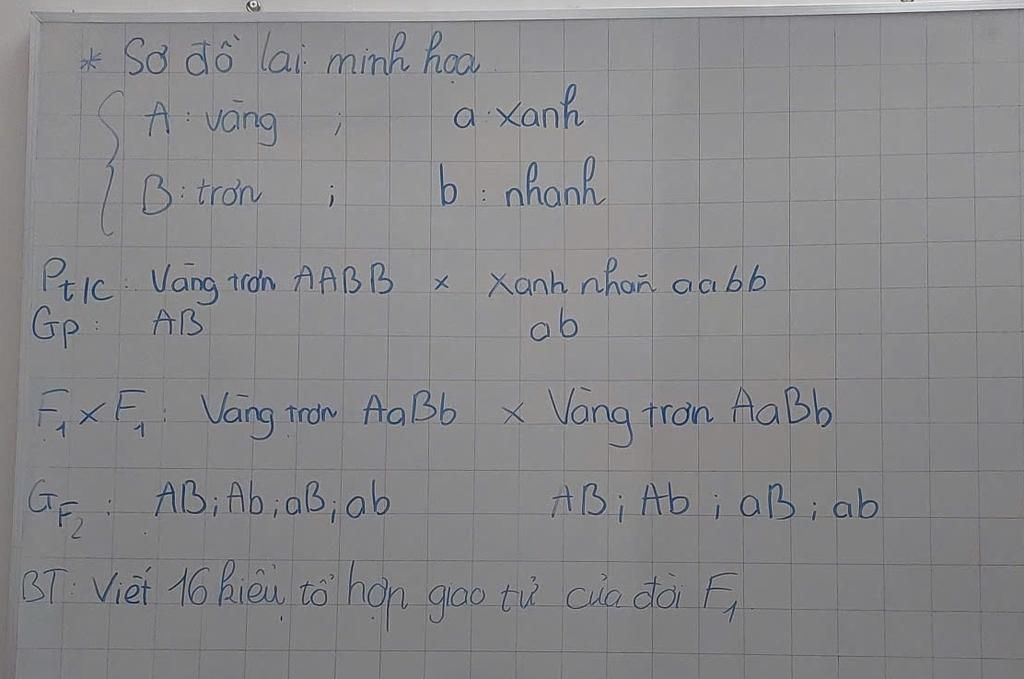 * Sơ đồ lai minh họa
A: vàng ; a: xanh
B: trơn ; b: nhanh
Pt/c: Vàng trơn AABB × xanh nhăn aabb
Gp: AB ab
F1 × F1: Vàng trơn AaBb × Vàng trơn AaBb
GF2: AB; Ab; aB; ab AB; Ab; aB; ab
BT: Viết 16 kiểu tổ hợp giao tử của đời F1